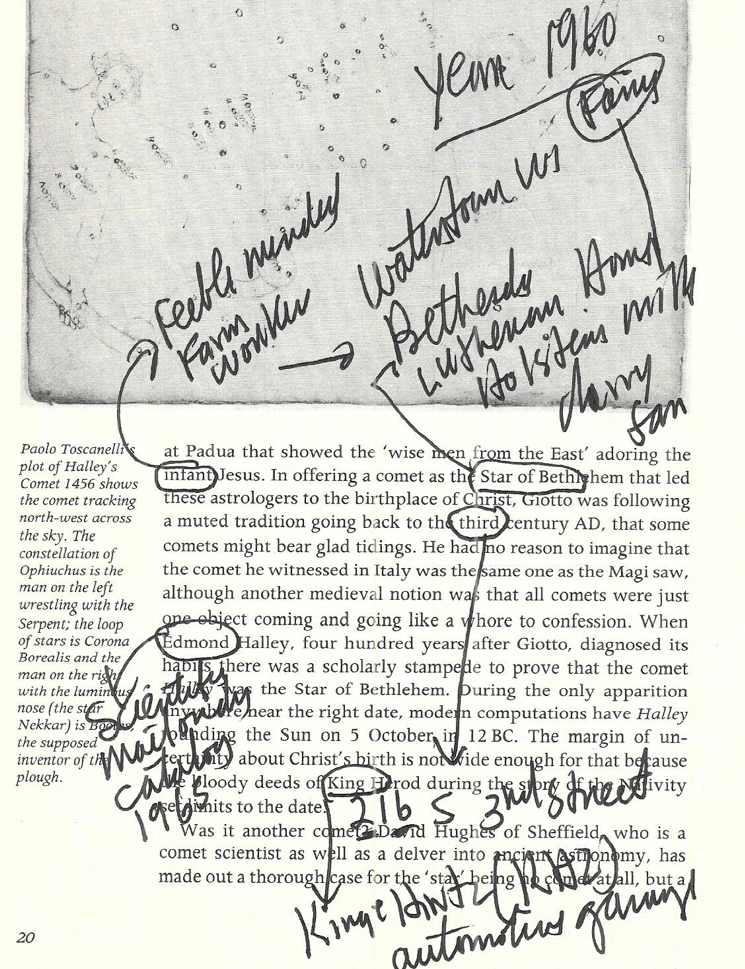 Year 1960
Farius
Watertown WS
Feeble minded
Farm
worker
Bethesda
Lutheran Home
Holsteins milk
dairy
farm
Paolo Toscanelli's
plot of Halley's
Comet 1456 shows
the comet tracking
north-west across
the sky. The
constellation of
Ophiuchus is the
man on the left
wrestling with the
Serpent; the loop
of stars is Corona
Borealis and the
man on the right
with the luminous
nose (the star
Nekkar) is Boötes,
the supposed
inventor of the
plough.
at Padua that showed the 'wise men from the East' adoring the
infant Jesus. In offering a comet as the Star of Bethlehem that led
these astrologers to the birthplace of Christ, Giotto was following
a muted tradition going back to the third century AD, that some
comets might bear glad tidings. He had no reason to imagine that
the comet he witnessed in Italy was the same one as the Magi saw,
although another medieval notion was that all comets were just
one object coming and going like a whore to confession. When
Edmond Halley, four hundred years after Giotto, diagnosed its
habits there was a scholarly stampede to prove that the comet
Halley was the Star of Bethlehem. During the only apparition
anywhere near the right date, modern computations have Halley
rounding the Sun on 5 October in 12 BC. The margin of un-
certainty about Christ's birth is not wide enough for that because
the bloody deeds of King Herod during the story of the Nativity
set limits to the date.
Was it another comet? David Hughes of Sheffield, who is a
comet scientist as well as a delver into ancient astronomy, has
made out a thorough case for the 'star' being no comet at all, but a
Scientific
mail order
catalog
1963
216 S 3rd Street
(KHZ)
automotive garage
20